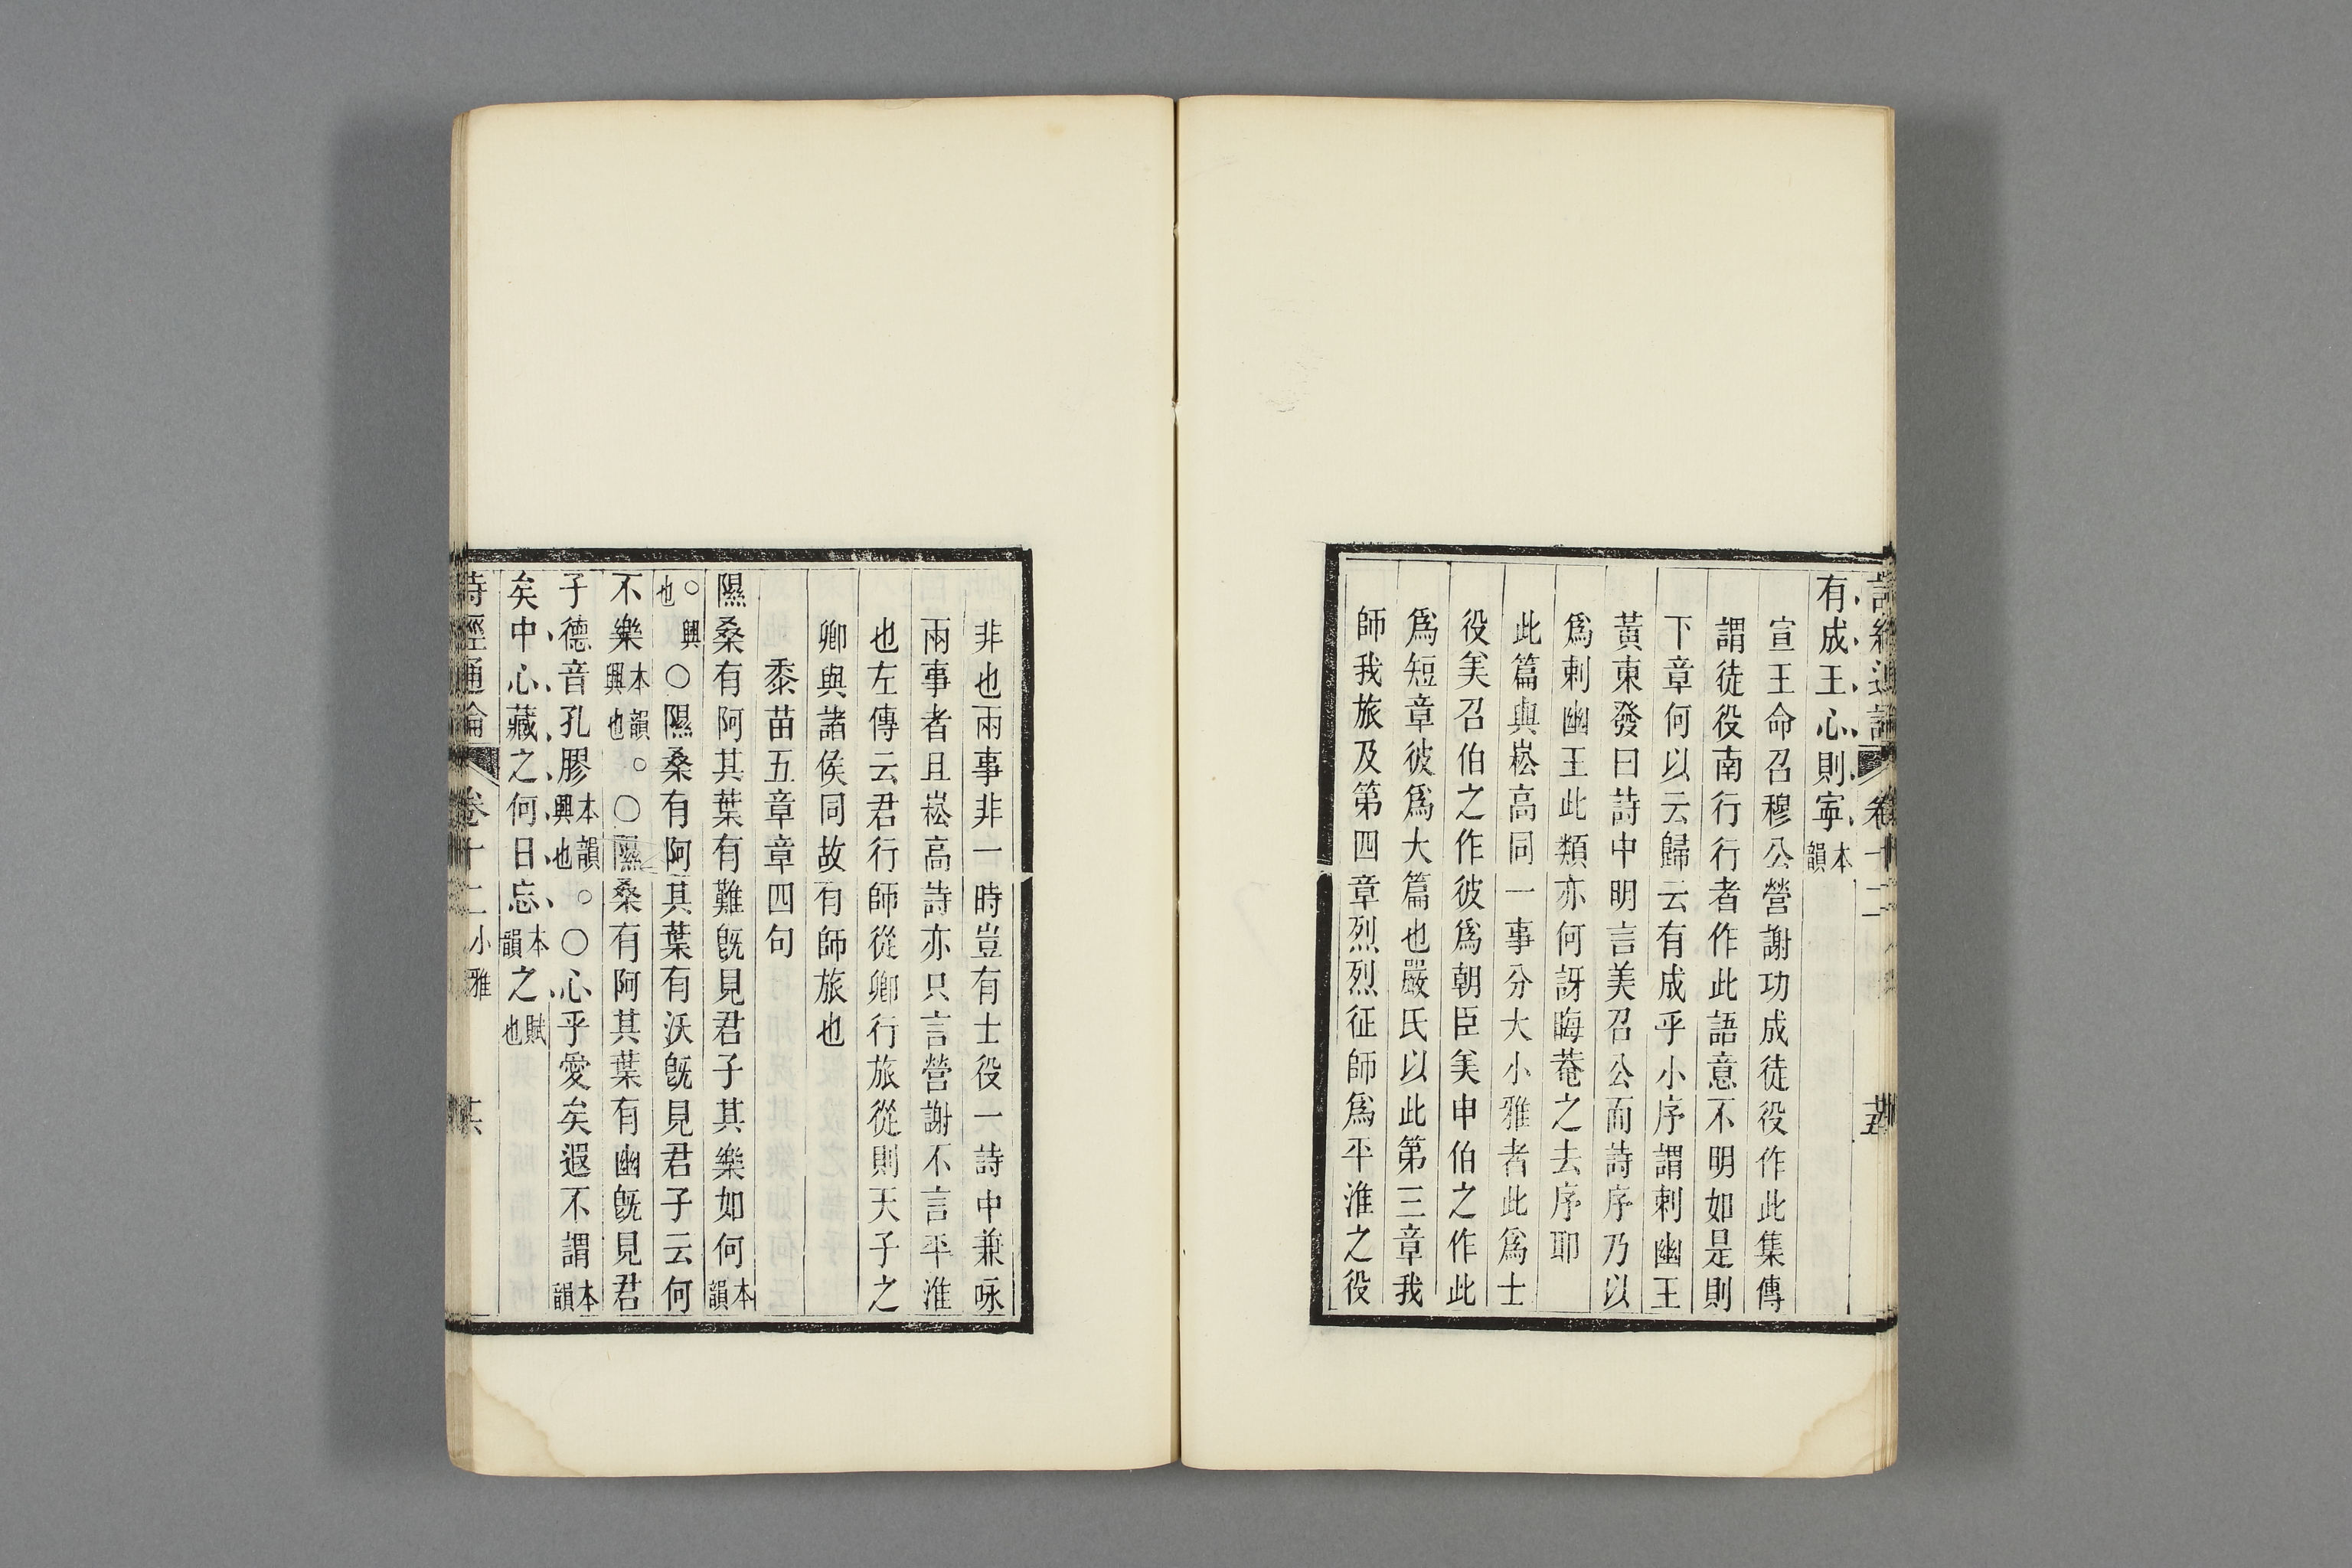 詩經通論 卷十二 廿五
有成王心則寧本韻
宣王命召穆公營謝功成徒役作此集傳
謂徒役南行行者作此語意不明如是則
下章何以云歸云有成乎小序謂刺幽王
黃東發曰詩中明言美召公而詩序乃以
爲刺幽王此類亦何訝晦菴之去序耶
此篇與崧高同一事分大小雅者此爲士
役美召伯之作彼爲朝臣美申伯之作此
爲短章彼爲大篇也嚴氏以此第三章我
師我旅及第四章烈烈征師爲平淮之役
非也兩事非一時豈有士役一詩中兼咏
兩事者且崧高詩亦只言營謝不言平淮
也左傳云君行師從卿行旅從則天子之
卿與諸侯同故有師旅也
黍苗五章章四句
隰桑有阿其葉有難旣見君子其樂如何本韻
○興也○隰桑有阿其葉有沃旣見君子云何
不樂本韻興也○○隰桑有阿其葉有幽旣見君
子德音孔膠本韻興也○○心乎愛矣遐不謂本韻
矣中心藏之何日忘本韻之賦也
詩經通論 卷十二 小雅 廿六